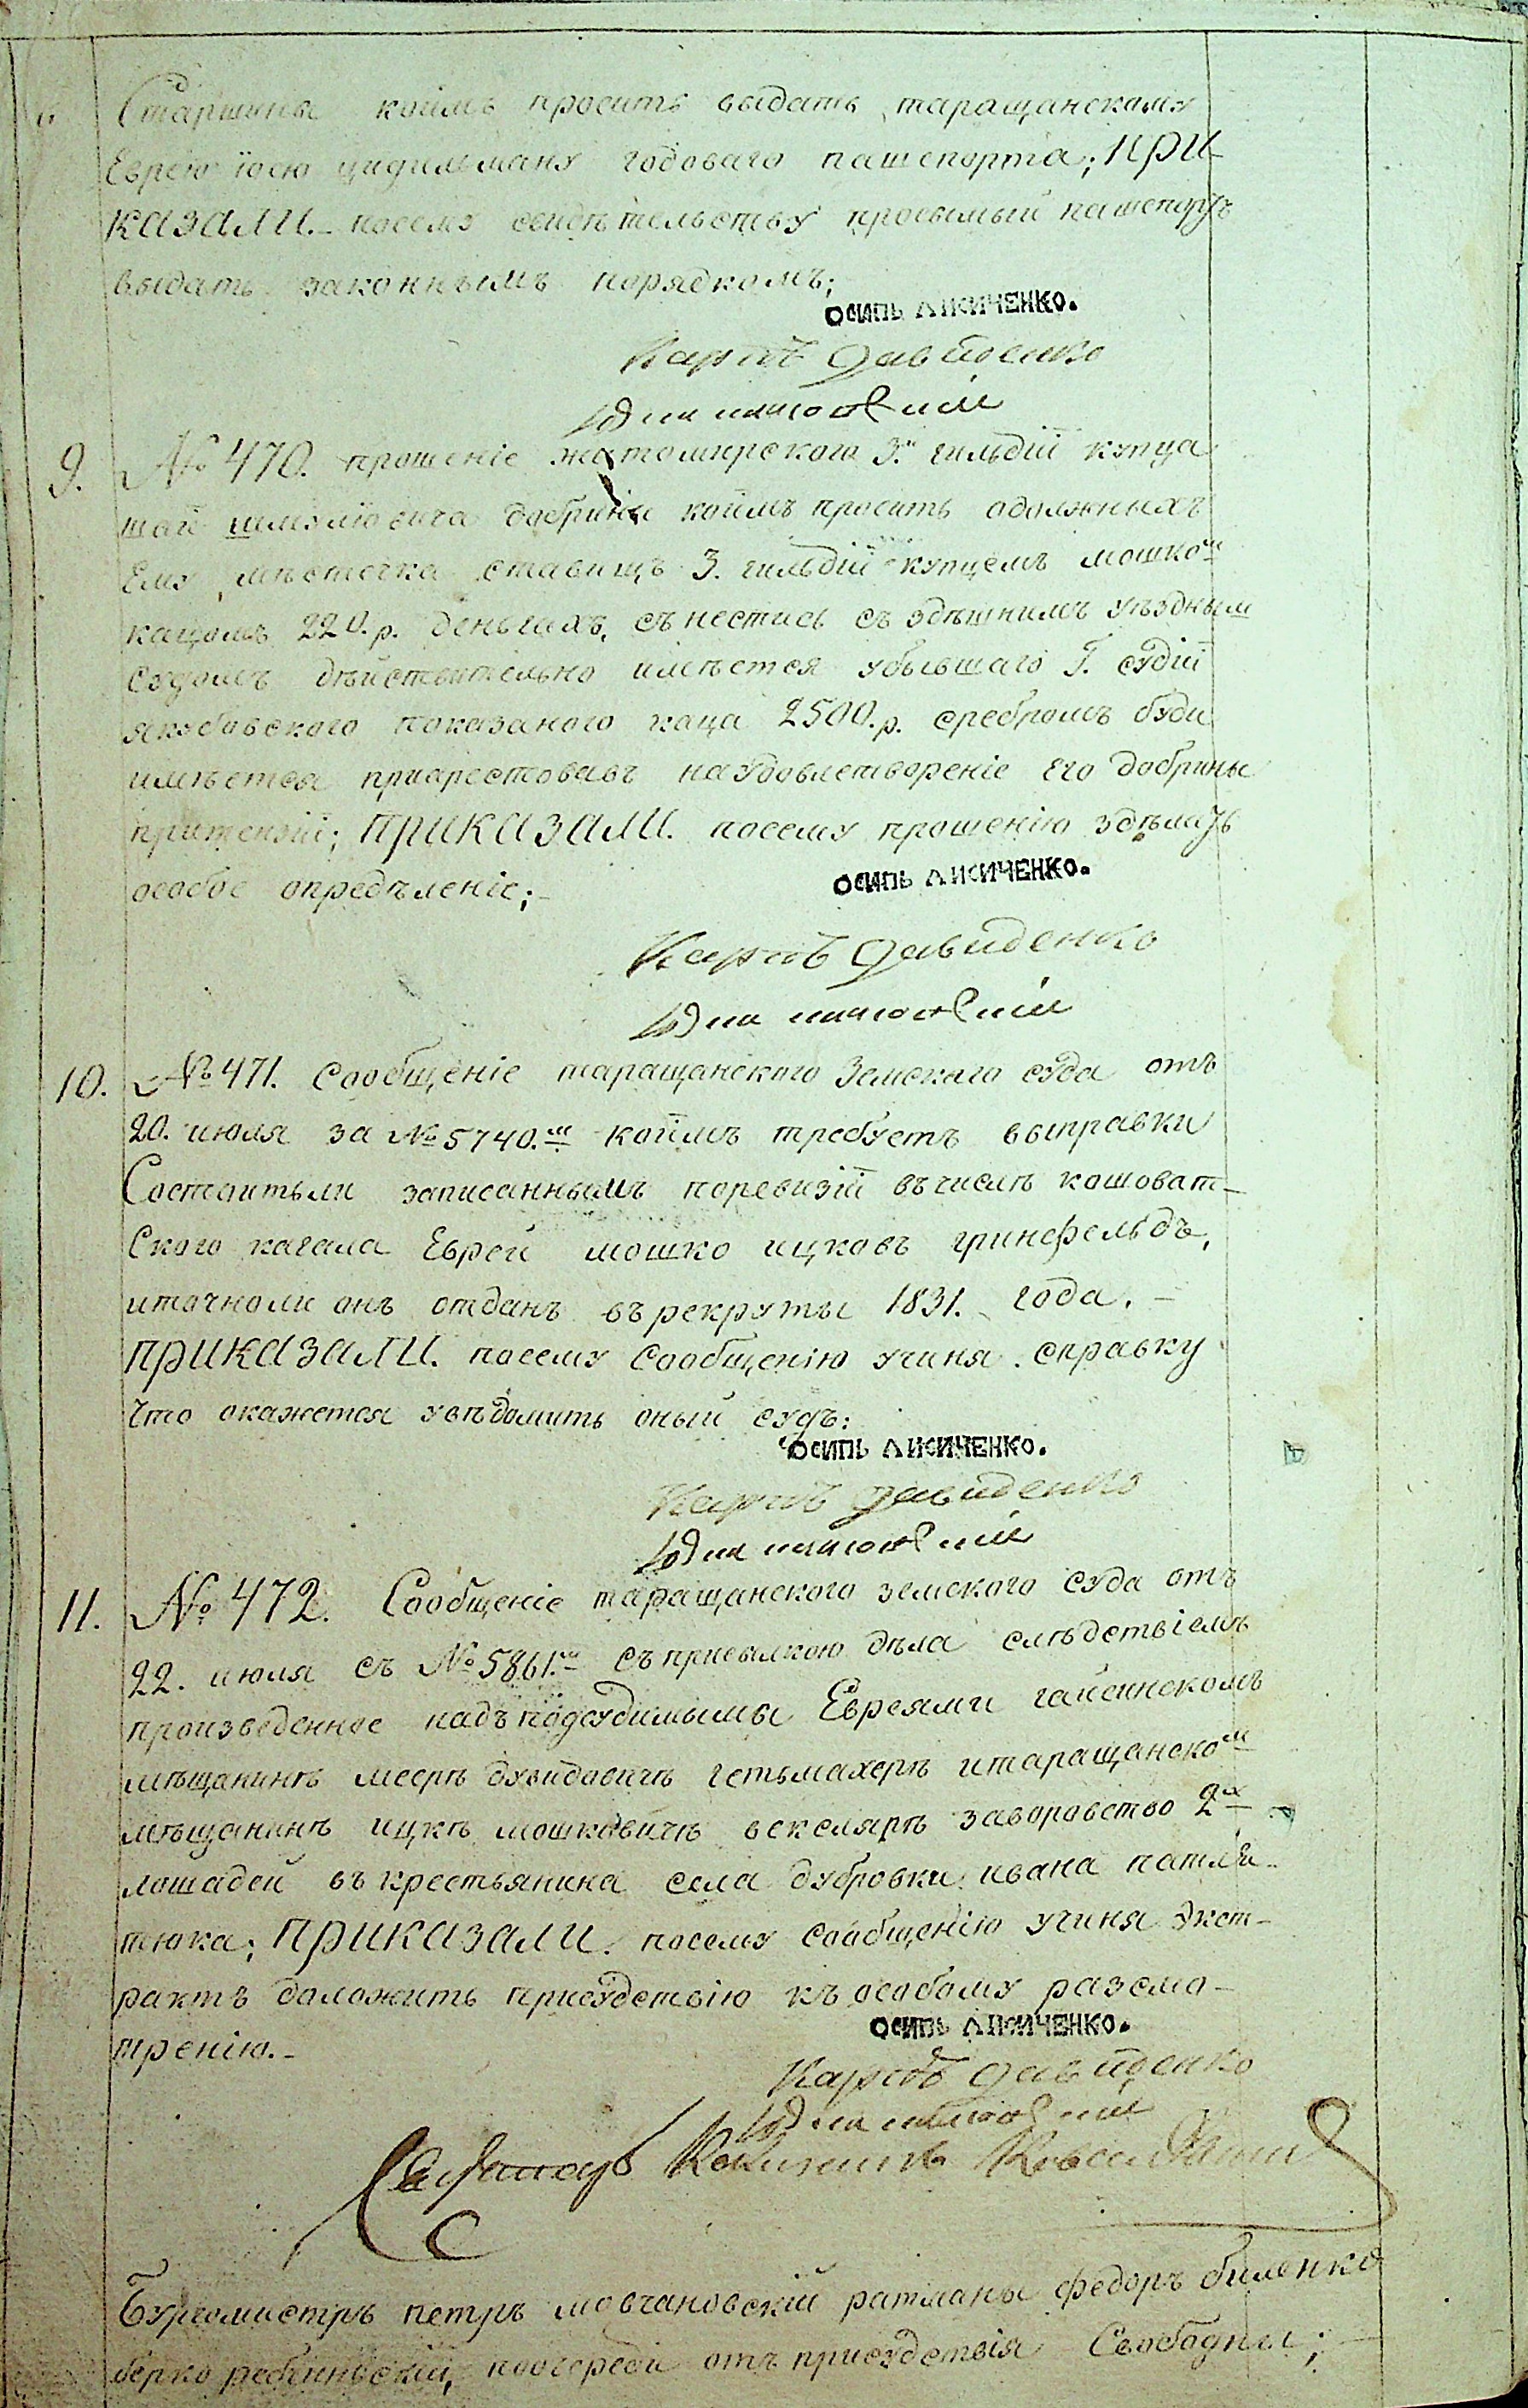 Старшины коимъ проситъ выдать таращанскому
Еврею іосю цидильману годоваго пашепорта; ПРИ-
КАЗАЛИ. посему свидѣтельству просимый пашепортъ
выдать законнымъ порядкомъ;
ОСИПЬ ЛИСИЧЕНКО.
Карпъ Давиденко
9. № 470. прошеніе житомирского 3й гильдіи купца
шмуліовича добрины коимъ проситъ одолжныхъ
Ему мѣстечка ставищъ 3. гильдіи купцемъ мошком
кацомъ 220.р. деньгахъ, снестись съ здѣшнимъ уѣзднымъ
Судомъ дѣйствительно имѣется убывшаго Г. судіи
якубовского показаного каца 2500.р. сребромъ буди
имѣется приарестовавъ наудовлетвореніе Его добрины
притензіи; ПРИКАЗАЛИ. посему прошенію здѣлать
особое опредѣленіе;-
ОСИПЬ ЛИСИЧЕНКО.
Карпъ Давиденко
10. № 471. Сообщеніе таращанского Земскаго суда отъ
20. июля за № 5740.м коимъ требуетъ выправки
Состоитъли записаннымъ поревизіи въчислѣ кошоват-
Ского кагала Еврей мошко ицковъ гринфельдъ,
иточноли онъ отданъ въ рекруты 1831. года. -
ПРИКАЗАЛИ. посему Сообщенію учиня справку
Что окажется увѣдомить оный судъ:
ОСИПЬ ЛИСИЧЕНКО.
Карпъ Давиденко
11. № 472. Сообщеніе таращанского земского суда отъ
22. июля съ № 5861.м съприсылкою дѣла слѣдствіемъ
произведенное надъ подсудимымы Евреями гайсинскомъ
мѣщанинѣ меерѣ дувидовичѣ гетьмахерѣ итаращанском
мѣщанинѣ ицкѣ мошковичѣ векслярѣ заворовство 2х
лошадей въ крестьянина села дубровки ивана патли-
тюка; ПРИКАЗАЛИ. посему сообщенію учиня Экст-
рактъ доложить присудствію къ особому разсмо-
трению.-
ОСИПЬ ЛИСИЧЕНКО.
Карпъ Давиденко
Бургомистръ петръ мовчановскій ратманы федоръ биленко
берко ребинскій, поочереди отъ присудствія Свободны;-